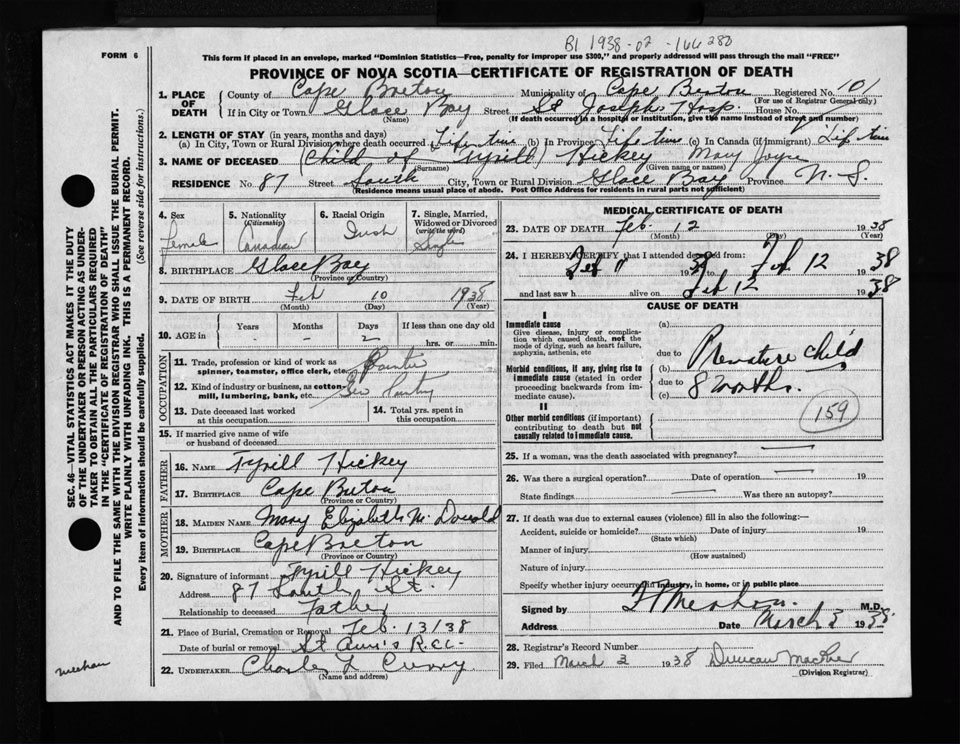 B1 1938-02-166280
FORM 6
This form if placed in an envelope, marked "Dominion Statistics—Free, penalty for improper use $300," and properly addressed will pass through the mail "FREE"
PROVINCE OF NOVA SCOTIA—CERTIFICATE OF REGISTRATION OF DEATH
1. PLACE OF DEATH County of Cape Breton Municipality of Cape Breton Registered No. 101
(For use of Registrar General only)
If in City or Town Glace Bay Street St Josephs Hosp. House No.
(Name) (If death occurred in a hospital or institution, give the name instead of street and number)
2. LENGTH OF STAY (in years, months and days)
(a) In City, Town or Rural Division where death occurred Life time (b) in Province Life time (c) In Canada (if immigrant) Life time
3. NAME OF DECEASED (Child of Tyrill) Hickey Mary Joyce
(Surname) (Given name or names)
RESIDENCE No. 87 Street South City, Town or Rural Division Glace Bay Province N. S.
(Residence means usual place of abode. Post Office Address for residents in rural parts not sufficient)
SEC. 46—VITAL STATISTICS ACT MAKES IT THE DUTY
OF THE UNDERTAKER OR PERSON ACTING AS UNDER-
TAKER TO OBTAIN ALL THE PARTICULARS REQUIRED
IN THE "CERTIFICATE OF REGISTRATION OF DEATH"
AND TO FILE THE SAME WITH THE DIVISION REGISTRAR WHO SHALL ISSUE THE BURIAL PERMIT.
WRITE PLAINLY WITH UNFADING INK. THIS IS A PERMANENT RECORD.
Every item of information should be carefully supplied. (See reverse side for instructions.)
4. Sex Female
5. Nationality (Citizenship) Canadian
6. Racial Origin Irish
7. Single, Married, Widowed or Divorced (write the word) Single
8. BIRTHPLACE Glace Bay
(Province or Country)
9. DATE OF BIRTH Feb 10 1938
(Month) (Day) (Year)
10. AGE in Years Months Days If less than one day
- - 2 hrs. or min.
OCCUPATION
11. Trade, profession or kind of work as spinner, teamster, office clerk, etc. Painter
12. Kind of industry or business, as cotton mill, lumbering, bank, etc.
13. Date deceased last worked at this occupation
14. Total yrs. spent in this occupation
15. If married give name of wife or husband of deceased
FATHER
16. NAME Tyrill Hickey
17. BIRTHPLACE Cape Breton
(Province or Country)
MOTHER
18. MAIDEN NAME Mary Elizabeth McDonald
19. BIRTHPLACE Cape Breton
(Province or Country)
20. Signature of informant Tyrill Hickey
Address 87 South St.
Relationship to deceased Father
21. Place of Burial, Cremation or Removal Feb. 13/38
Date of burial or removal St Ann's R.C.
22. UNDERTAKER Charles L Curry
(Name and address)
meehan
MEDICAL CERTIFICATE OF DEATH
23. DATE OF DEATH Feb. 12 1938
(Month) (Day) (Year)
24. I HEREBY CERTIFY that I attended deceased from:
Feb 11 1938 to Feb 12 1938
and last saw h alive on Feb 12 1938
CAUSE OF DEATH
I
Immediate cause
Give disease, injury or complication which caused death, not the mode of dying, such as heart failure, asphyxia, asthenia, etc
(a)
due to Premature child,
Morbid conditions, if any, giving rise to immediate cause (stated in order proceeding backwards from immediate cause).
(b)
due to 8 months.
(c)
II
Other morbid conditions (if important) contributing to death but not causally related to immediate cause.
159
25. If a woman, was the death associated with pregnancy? —
26. Was there a surgical operation? — Date of operation 19
State findings — Was there an autopsy?
27. If death was due to external causes (violence) fill in also the following:—
Accident, suicide or homicide? Date of injury 19
(State which)
Manner of injury
(How sustained)
Nature of injury
Specify whether injury occurred in industry, in home, or in public place
Signed by Meehan. M.D.
Address Date March 3 1938
28. Registrar's Record Number
29. Filed March 3 1938 Duncan
(Division Registrar)